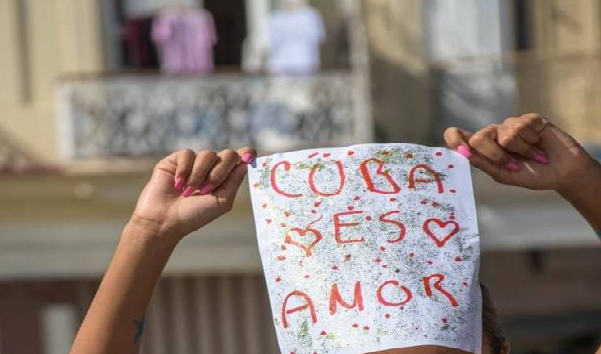 CUBA
ES
AMOR